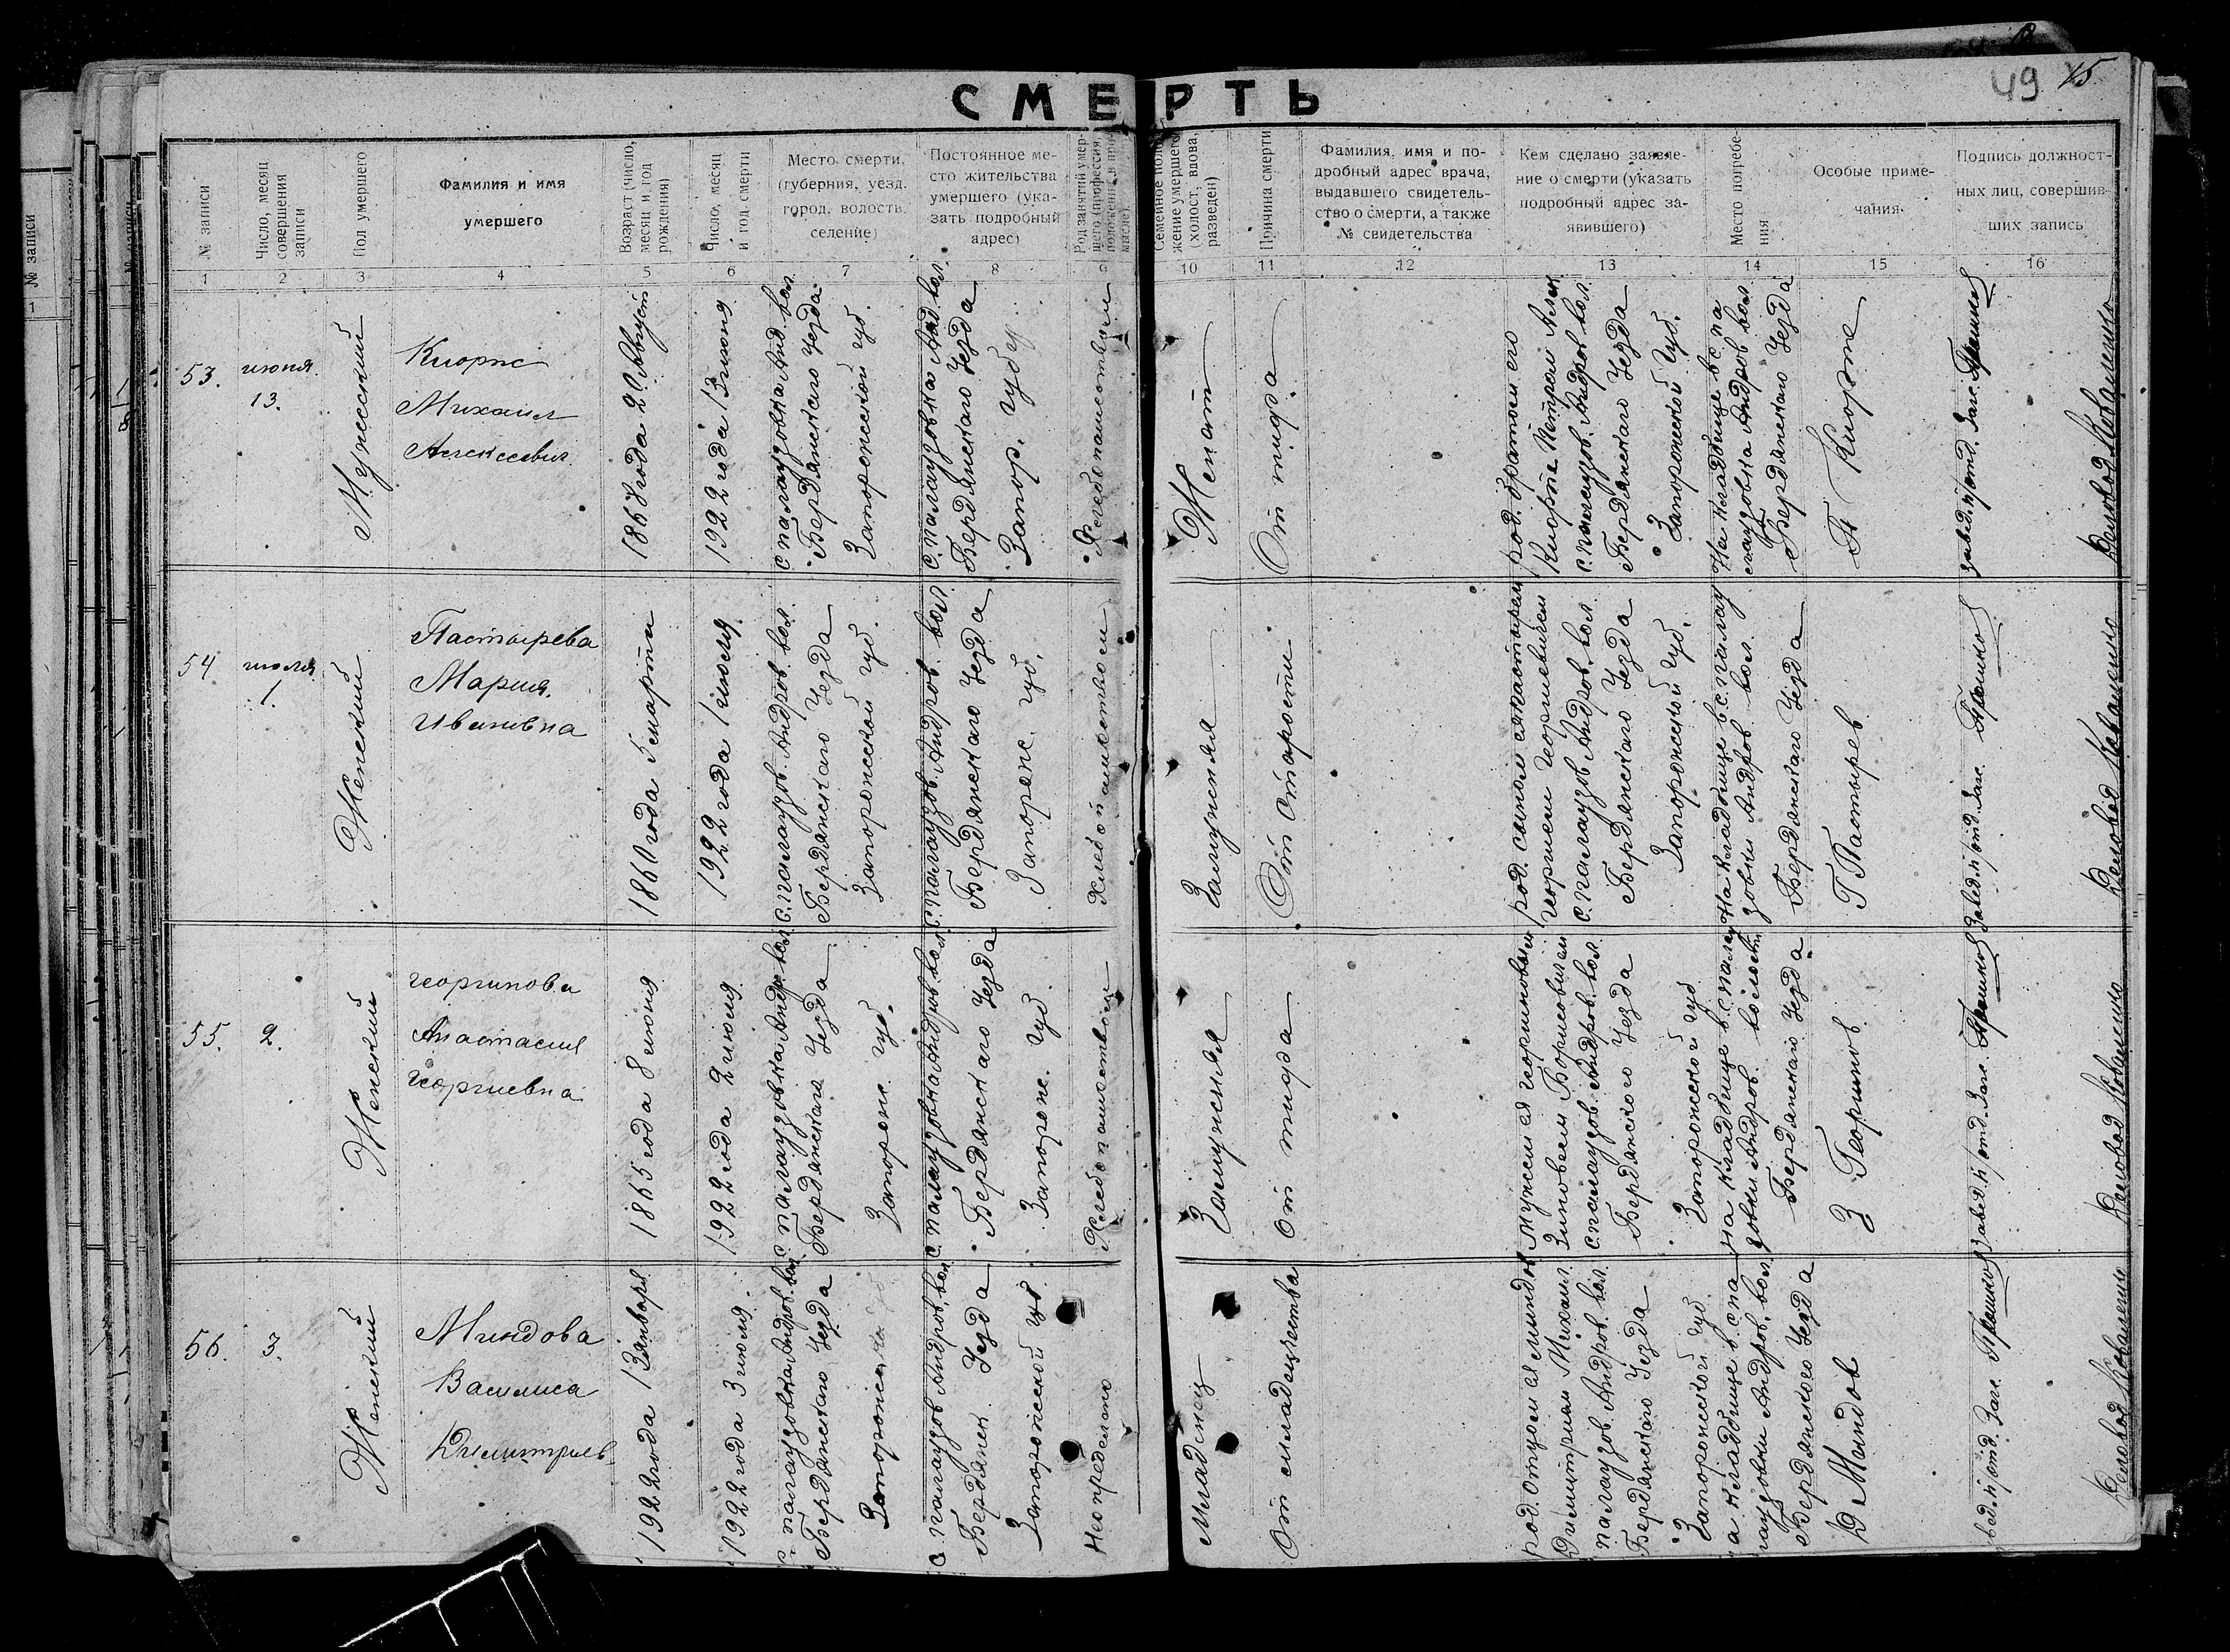 49 15
СМЕРТЬ
№ записи
Число, месяц
совершения
записи
Пол умершего
Фамилия и имя
умершего
Возраст (число,
месяц и год
рождения)
Число, месяц
и год смерти
Место смерти,
(губерния, уезд,
город, волость,
селение)
Постоянное ме-
сто жительства
умершего (ука-
зать подробный
адрес)
Род занятий умер-
шего (профессия,
Семейное поло-
жение умершего
(холост, вдова,
разведен)
Причина смерти
Фамилия, имя и по-
дробный адрес врача,
выдавшего свидетель-
ство о смерти, а также
№ свидетельства
Кем сделано заявле-
ние о смерти (указать
подробный адрес за-
явившего)
Место погребе-
ния
Особые приме-
чания
Подпись должност-
ных лиц, совершив-
ших запись
1 2 3 4 5 6 7 8 9 10 11 12 13 14 15 16
53.
июня
13.
Мужеский
Киорпе
Михаил
Алексеевич
1868 года 20 Август
1922 года 13 июня
с палаузовка Анд. вол.
Бердянского Уезда
Запорожской губ.
с. палаузовка Анд вол.
Бердянского Уезда
Запор. губер.
Хлебопашеством
Женат
От тифа
род. братом его
Киорпе Петром Алек
с. палаузов. Андров. вол.
Бердянского Уезда
Запорожской Губ.
На кладбище в с па
лаузовка Андров вол
Бердянского Уезда
П Киорпе
завед. п/отд. Загс.
Деловод Коваленко
54
июля
1.
Женский
Пастырева
Мария
Ивановна
1860 года 5 марта
1922 года 1 июля
с. палаузов. Андров. вол.
Бердянского Уезда
Запорожской губ.
с. палаузов. Андров. вол.
Бердянского Уезда
Запорож. губ.
Хлебопашеством
Замужняя
От старости
род. сыном ея пастырем
георгием Георгиевичем
с. палаузов. Андров. вол.
Бердянского Уезда
Запорожской губ.
На кладбище в с. палау
зовки Андров. вол.
Бердянского Уезда
Г Пастырев
Завед. п/отд. Загс.
Деловод Коваленко
55.
2.
Женский
георгинова
Анастасия
георгиевна
1865 года 8 июня
1922 года 2 июля
с. палаузовка Андр вол
Бердянского Уезда
Запорож. губ.
с. палаузовка Андров. вол.
Бердянского Уезда
Запорож. губ.
Хлебопашеством
Замужняя
От тифа
мужем ея георгиновым
Зиновем Борисовичем
с. палаузов. Андров. вол
Бердянского Уезда
Запорожской губ
на кладбище в с. палау
зовки Андров. волости
Бердянского Уезда
З Георгинов
завед. п/отд. Загс.
Деловод Коваленко
56.
3.
Женский
Миндова
Василиса
Дмитриев.
1922 года 13 января
1922 года 3 июля
с палаузовка Андров. вол.
Бердянского Уезда
Запорож.
с палаузов Андров. вол.
Бердянск. Уезда
Запорожской губ.
Неопределено
Младенец
От младенчества
род. отцом ея миндов
Дмитрием Михаил
палаузов. Андров. вол.
Бердянского Уезда
Запорожской губ.
а кладбище в с па
лаузовки Андров. вол.
Бердянского Уезда
Д Миндов
вед. п/отд. Загс.
Деловод Коваленко